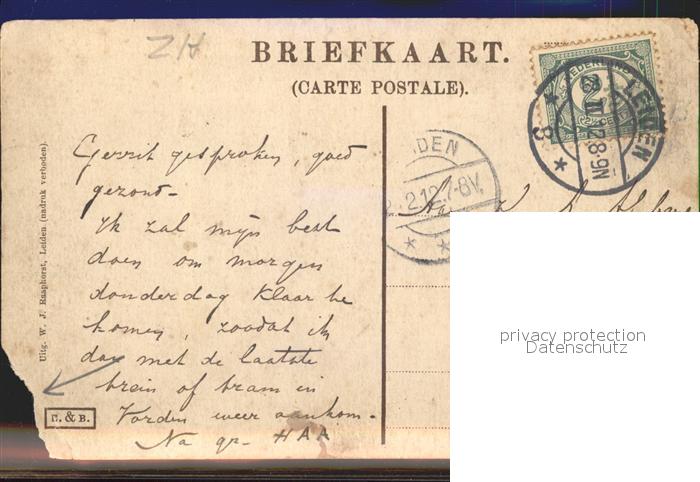 ZH
BRIEFKAART.
(CARTE POSTALE).
NEDERLAND
2½ CENT
LEIDEN
8-9N
IDEN
2.12.7-8V.
Gerrit gesproken, goed
gezond-
Ik zal mijn best
doen om morgen
donderdag klaar te
komen, zoodat ik
dan met de laatste
trein of tram in
Vorden weer aankom-
Na gr- HAA
Uitg. W. J. Raaphorst, Leiden. (nadruk verboden).
N. & B.
privacy protection
Datenschutz